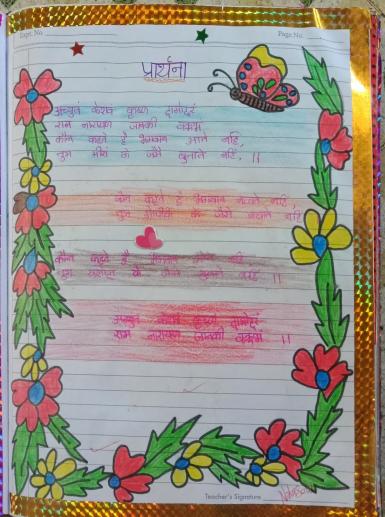 Expt. No.
Page No.
प्रार्थना
अच्युतं केशव कृष्ण दामोदरं
राम नारायण जानकी वल्लभं
कौन कहते है भगवान आते नहि,
तुम मीरा के जैसे बुलाते नहि, ।।
कौन कहते है भगवान नाचते नहि,
तुम गोपीओ के जैसे नचाते नहि
कौन कहते है भगवान सोते नहि
के जैसे सुलाते नहि ।।
अच्युत केशव कृष्ण दामोदरं
राम नारायण जानकी वल्लभ ।।
Teacher's Signature